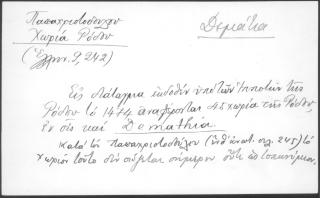 Παπαχριστοδούλου
Χωρία Ρόδου
(Ἑλλην. 9, 242)
Δεμάθια
Εἰς διάταγμα ἐκδοθὲν ὑπὸ τῶν Ἱπποτῶν τῆς
Ρόδου τὸ 1474 ἀναφέρονται 45 χωρία τῆς Ρόδου,
ἐν οἷς καὶ Demathia.
Κατὰ τὸν Παπαχριστοδούλου (ἔνθ' ἀνωτ. σελ. 245) τὸ
χωρίον τοῦτο δὲν σῴζεται σήμερον οὔτε ὡς τοπωνύμιον.